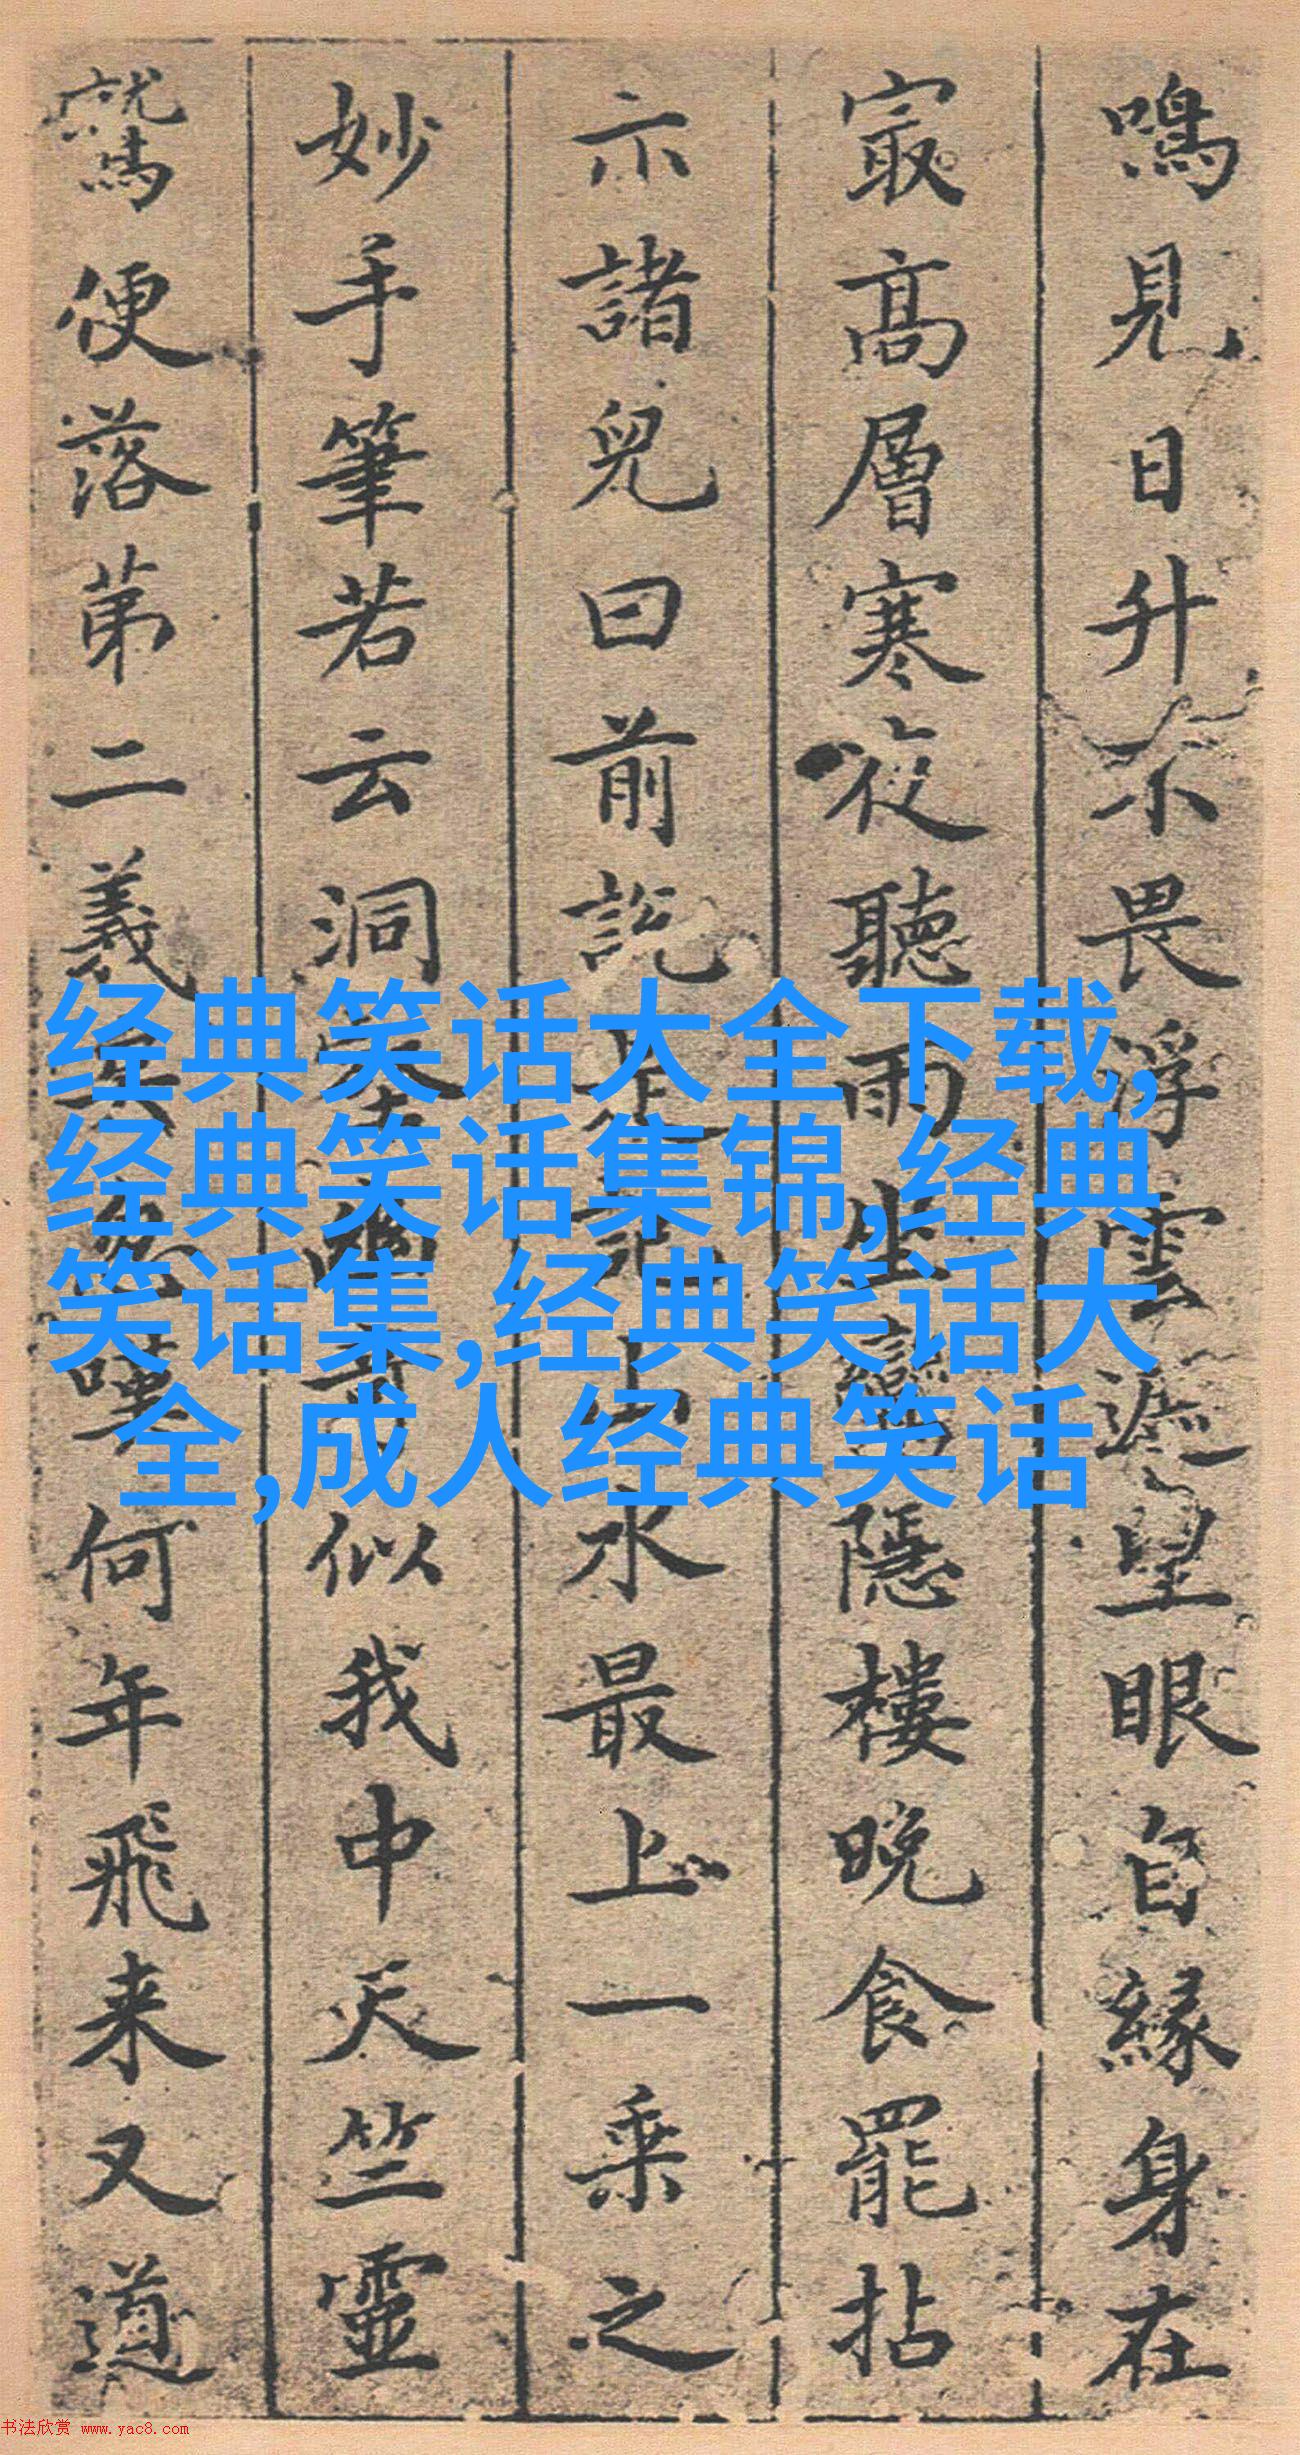 鳴見日升不畏浮雲遮望眼自緣身在
㝡高層寒夜聽雨坐隱樓晚食罷拈
示諸兒曰前説山水最上一乘之
妙手筆若云洞幽奇似我中天竺靈
鷲便落第二義嘆何年飛来又道
经典笑话大全下载,
经典笑话集锦,经典
笑话集,经典笑话大
全,成人经典笑话
书法欣赏 www.yac8.com